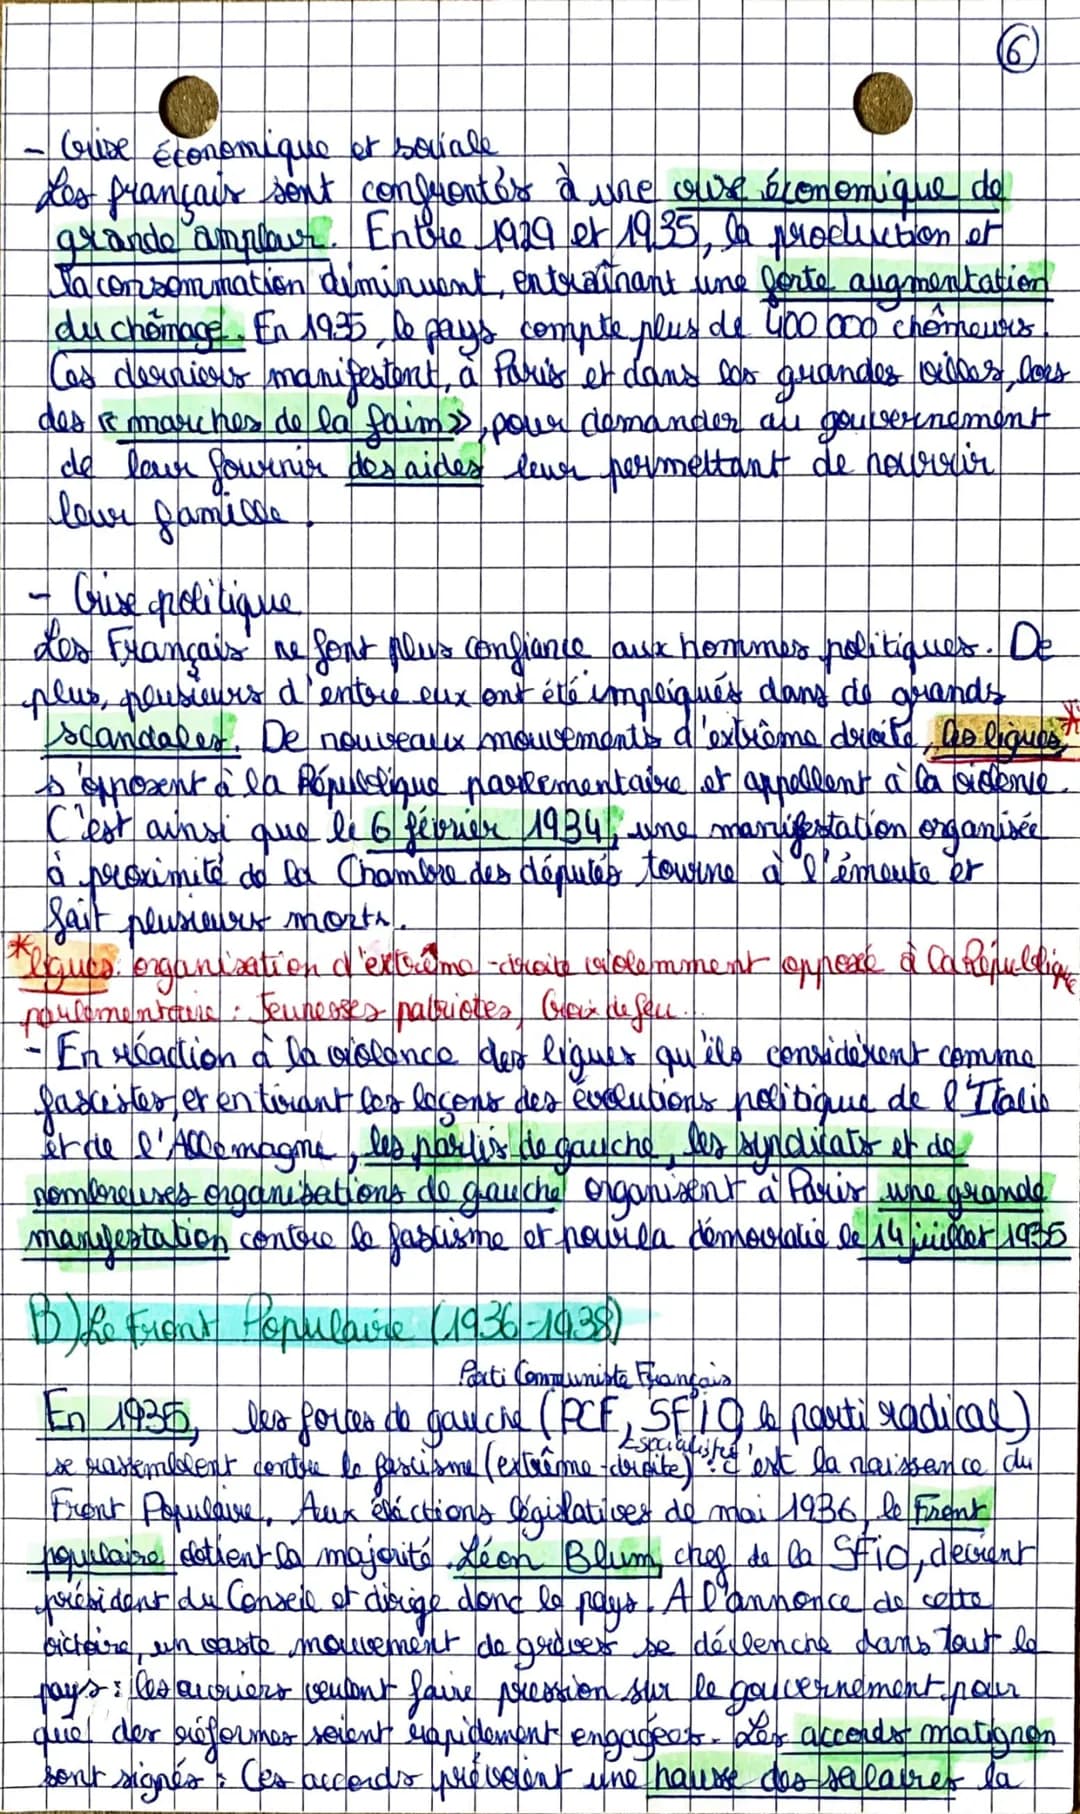 6
- Crise économique et sociale
Les français sont confrontés à une crise économique de
grande ampleur. Entre 1929 et 1935, la production et
la consommation diminuent, entraînant une forte augmentation
du chômage. En 1935, le pays compte plus de 400 000 chômeurs.
Ces derniers manifestent, à Paris et dans les grandes villes, lors
des « marches de la faim », pour demander au gouvernement
de leur fournir des aides leur permettant de nourrir
leur famille.
- Crise politique
Les Français ne font plus confiance aux hommes politiques. De
plus, plusieurs d'entre eux ont été impliqués dans de grands
scandales. De nouveaux mouvements d'extrême droite, les ligues*
s'opposent à la République parlementaire et appellent à la violence.
C'est ainsi que le 6 février 1934, une manifestation organisée
à proximité de la Chambre des députés tourne à l'émeute et
fait plusieurs morts.
*ligues: organisation d'extrême-droite violemment opposé à la République
parlementaire : Jeunesses patriotes, Croix de feu...
- En réaction à la violence des ligues qu'ils considèrent comme
fascistes, et en tirant les leçons des évolutions politique de l'Italie
et de l'Allemagne, les partis de gauche, les syndicats et de
nombreuses organisations de gauche organisent à Paris une grande
manifestation contre le fascisme et pour la démocratie le 14 juillet 1935
B) Le Front Populaire (1936-1938)
Parti Communiste Français
En 1935, les forces de gauche (PCF, SFIO le parti radical)
socialiste
se rassemblent contre le fascisme (extrême-droite) : c'est la naissance du
Front Populaire. Aux éléctions législatives de mai 1936, le Front
populaire détient la majorité. Léon Blum, chef de la SFIO, devient
président du Conseil et dirige donc le pays. A l'annonce de cette
victoire, un vaste mouvement de grèves se déclenche dans tout le
pays : les ouvriers veulent faire pression sur le gouvernement pour
que des réformes soient rapidement engagées. Les accords matignon
sont signés : Ces accords prévoient une hausse des salaires la